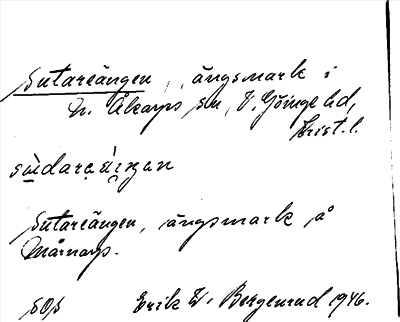 Sutareängen, ängsmark i
N. Åkarps sn, V. Göinge hd,
Krist. l.
Sutareängen, ängsmark å
Mårnarp.
SOS Erik W. Bergenrud 1946.